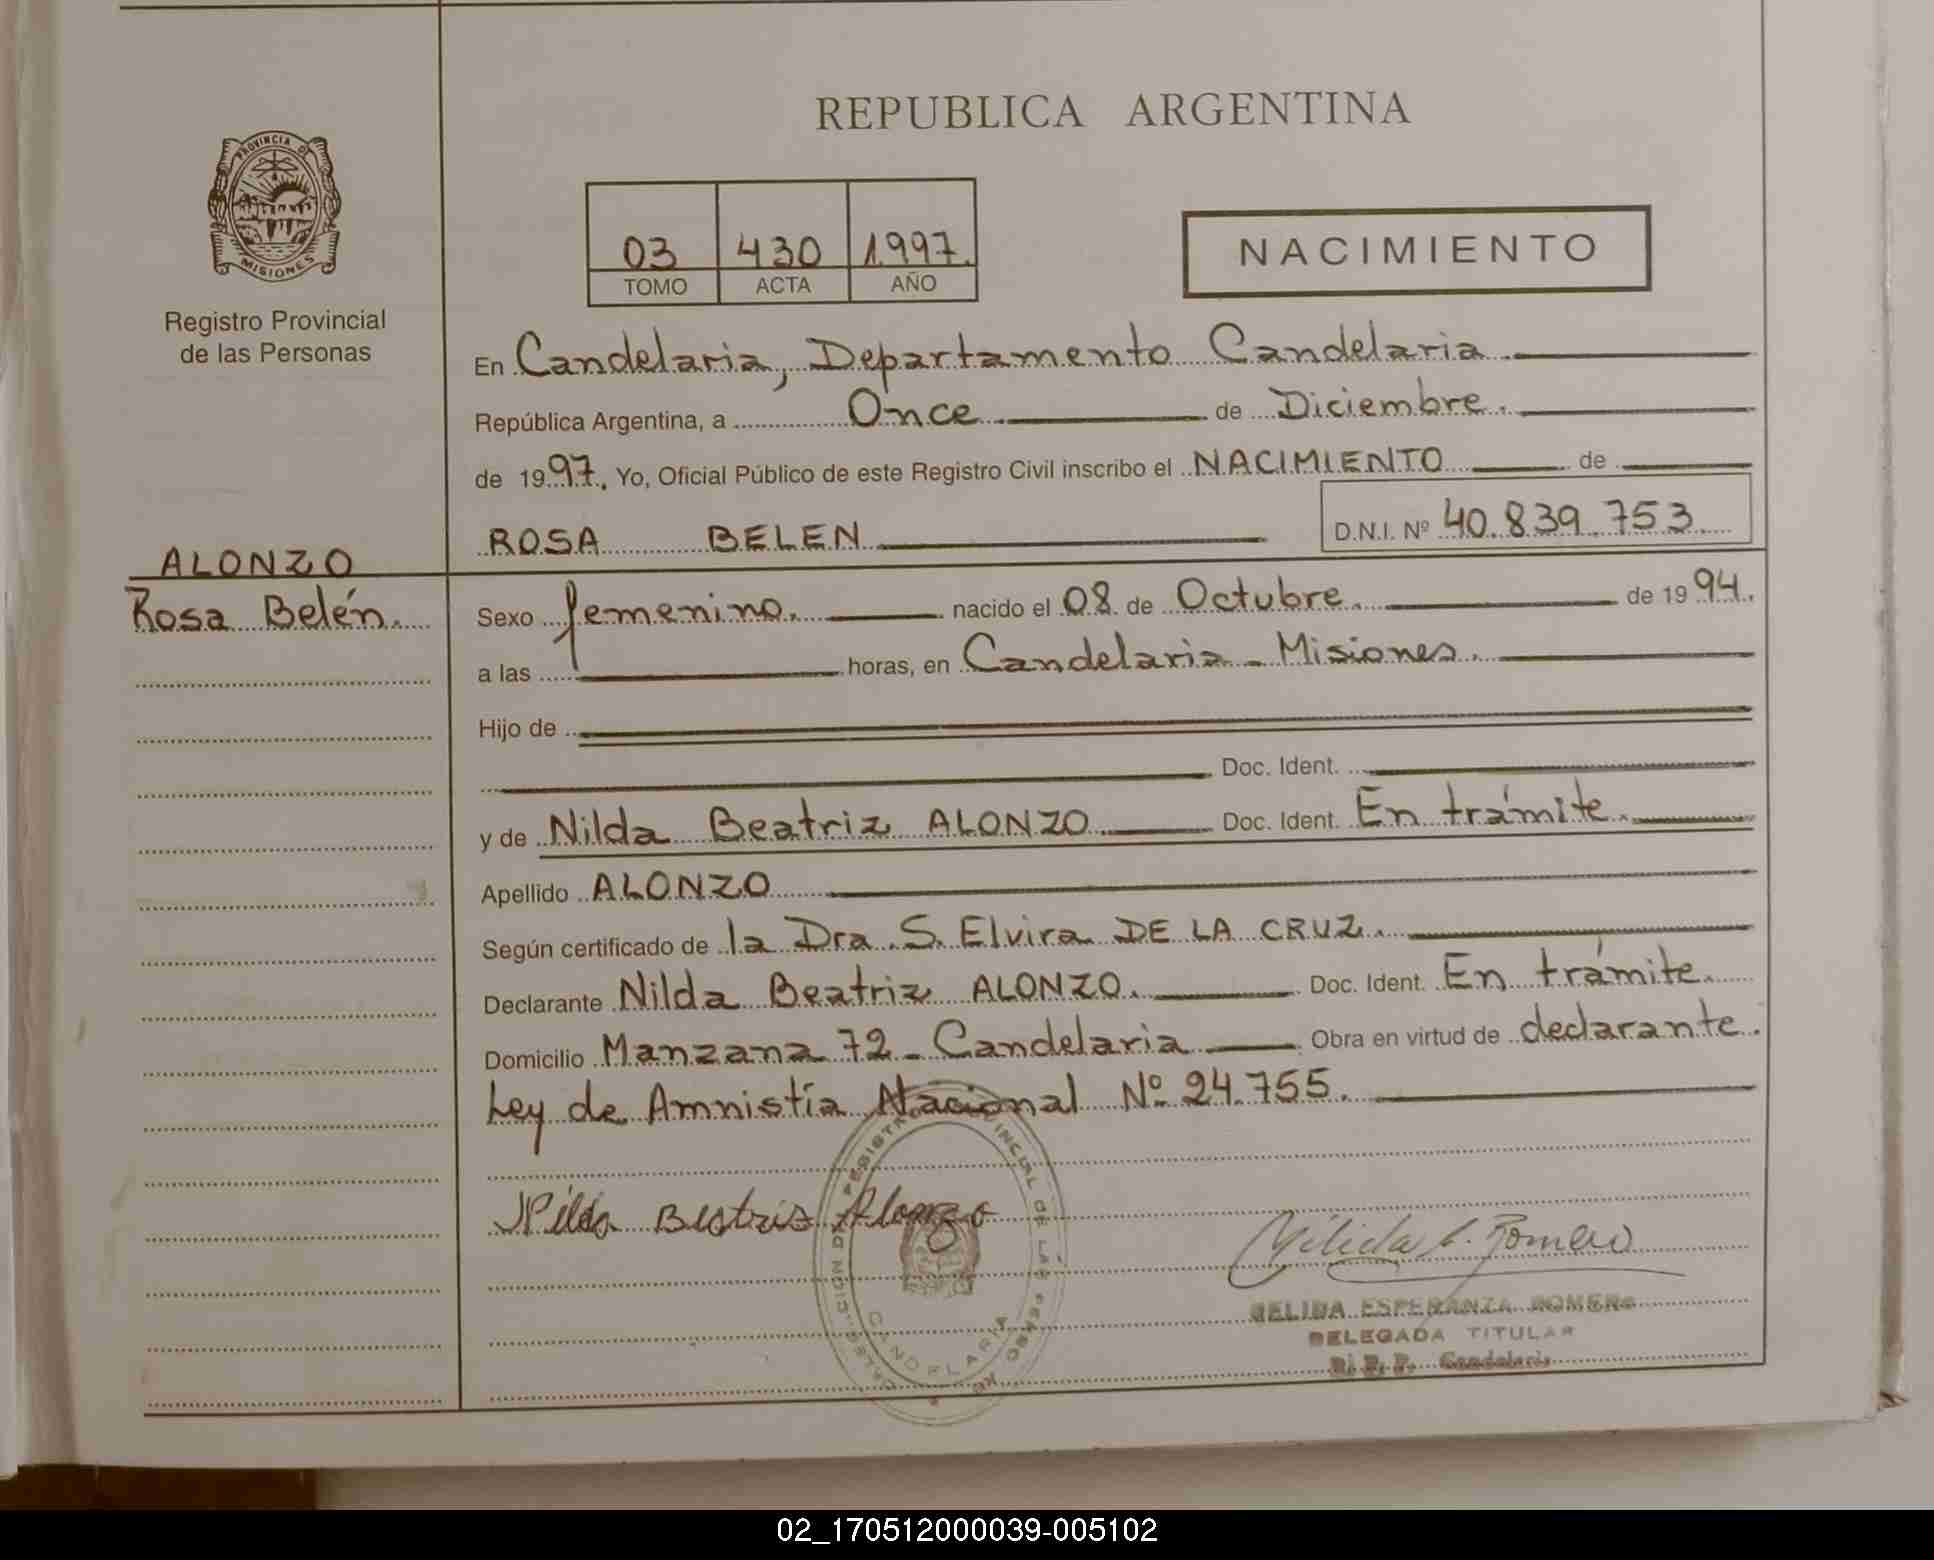 REPUBLICA ARGENTINA
PROVINCIA DE
MISIONES
Registro Provincial
de las Personas
03 430 1.997.
TOMO ACTA AÑO
NACIMIENTO
En Candelaria, Departamento Candelaria.
República Argentina, a Once de Diciembre.
de 1997. Yo, Oficial Público de este Registro Civil inscribo el NACIMIENTO de
ROSA BELEN D.N.I. Nº 40.839.753
ALONZO
Rosa Belén.
Sexo femenino. nacido el 08 de Octubre. de 1994.
a las horas, en Candelaria - Misiones.
Hijo de
Doc. Ident.
y de Nilda Beatriz ALONZO Doc. Ident. En trámite.
Apellido ALONZO
Según certificado de la Dra. S. Elvira DE LA CRUZ.
Declarante Nilda Beatriz ALONZO. Doc. Ident. En trámite.
Domicilio Manzana 72 - Candelaria Obra en virtud de declarante.
Ley de Amnistía Nacional Nº 24.755.
Nilda Beatriz Alonzo
REGISTRO PROVINCIAL DE LAS PERSONAS
CANDELARIA
Nélida E. Romero
NELIDA ESPERANZA ROMERO
DELEGADA TITULAR
R. P. P. Candelaria
02_170512000039-005102